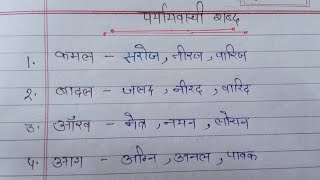 पर्यायवाची शब्द
1. कमल - सरोज, नीरज, वारिज
2. बादल - जलद, नीरद, वारिद
3. आँख - नेत्र, नयन, लोचन
4. आग - अग्नि, अनल, पावक